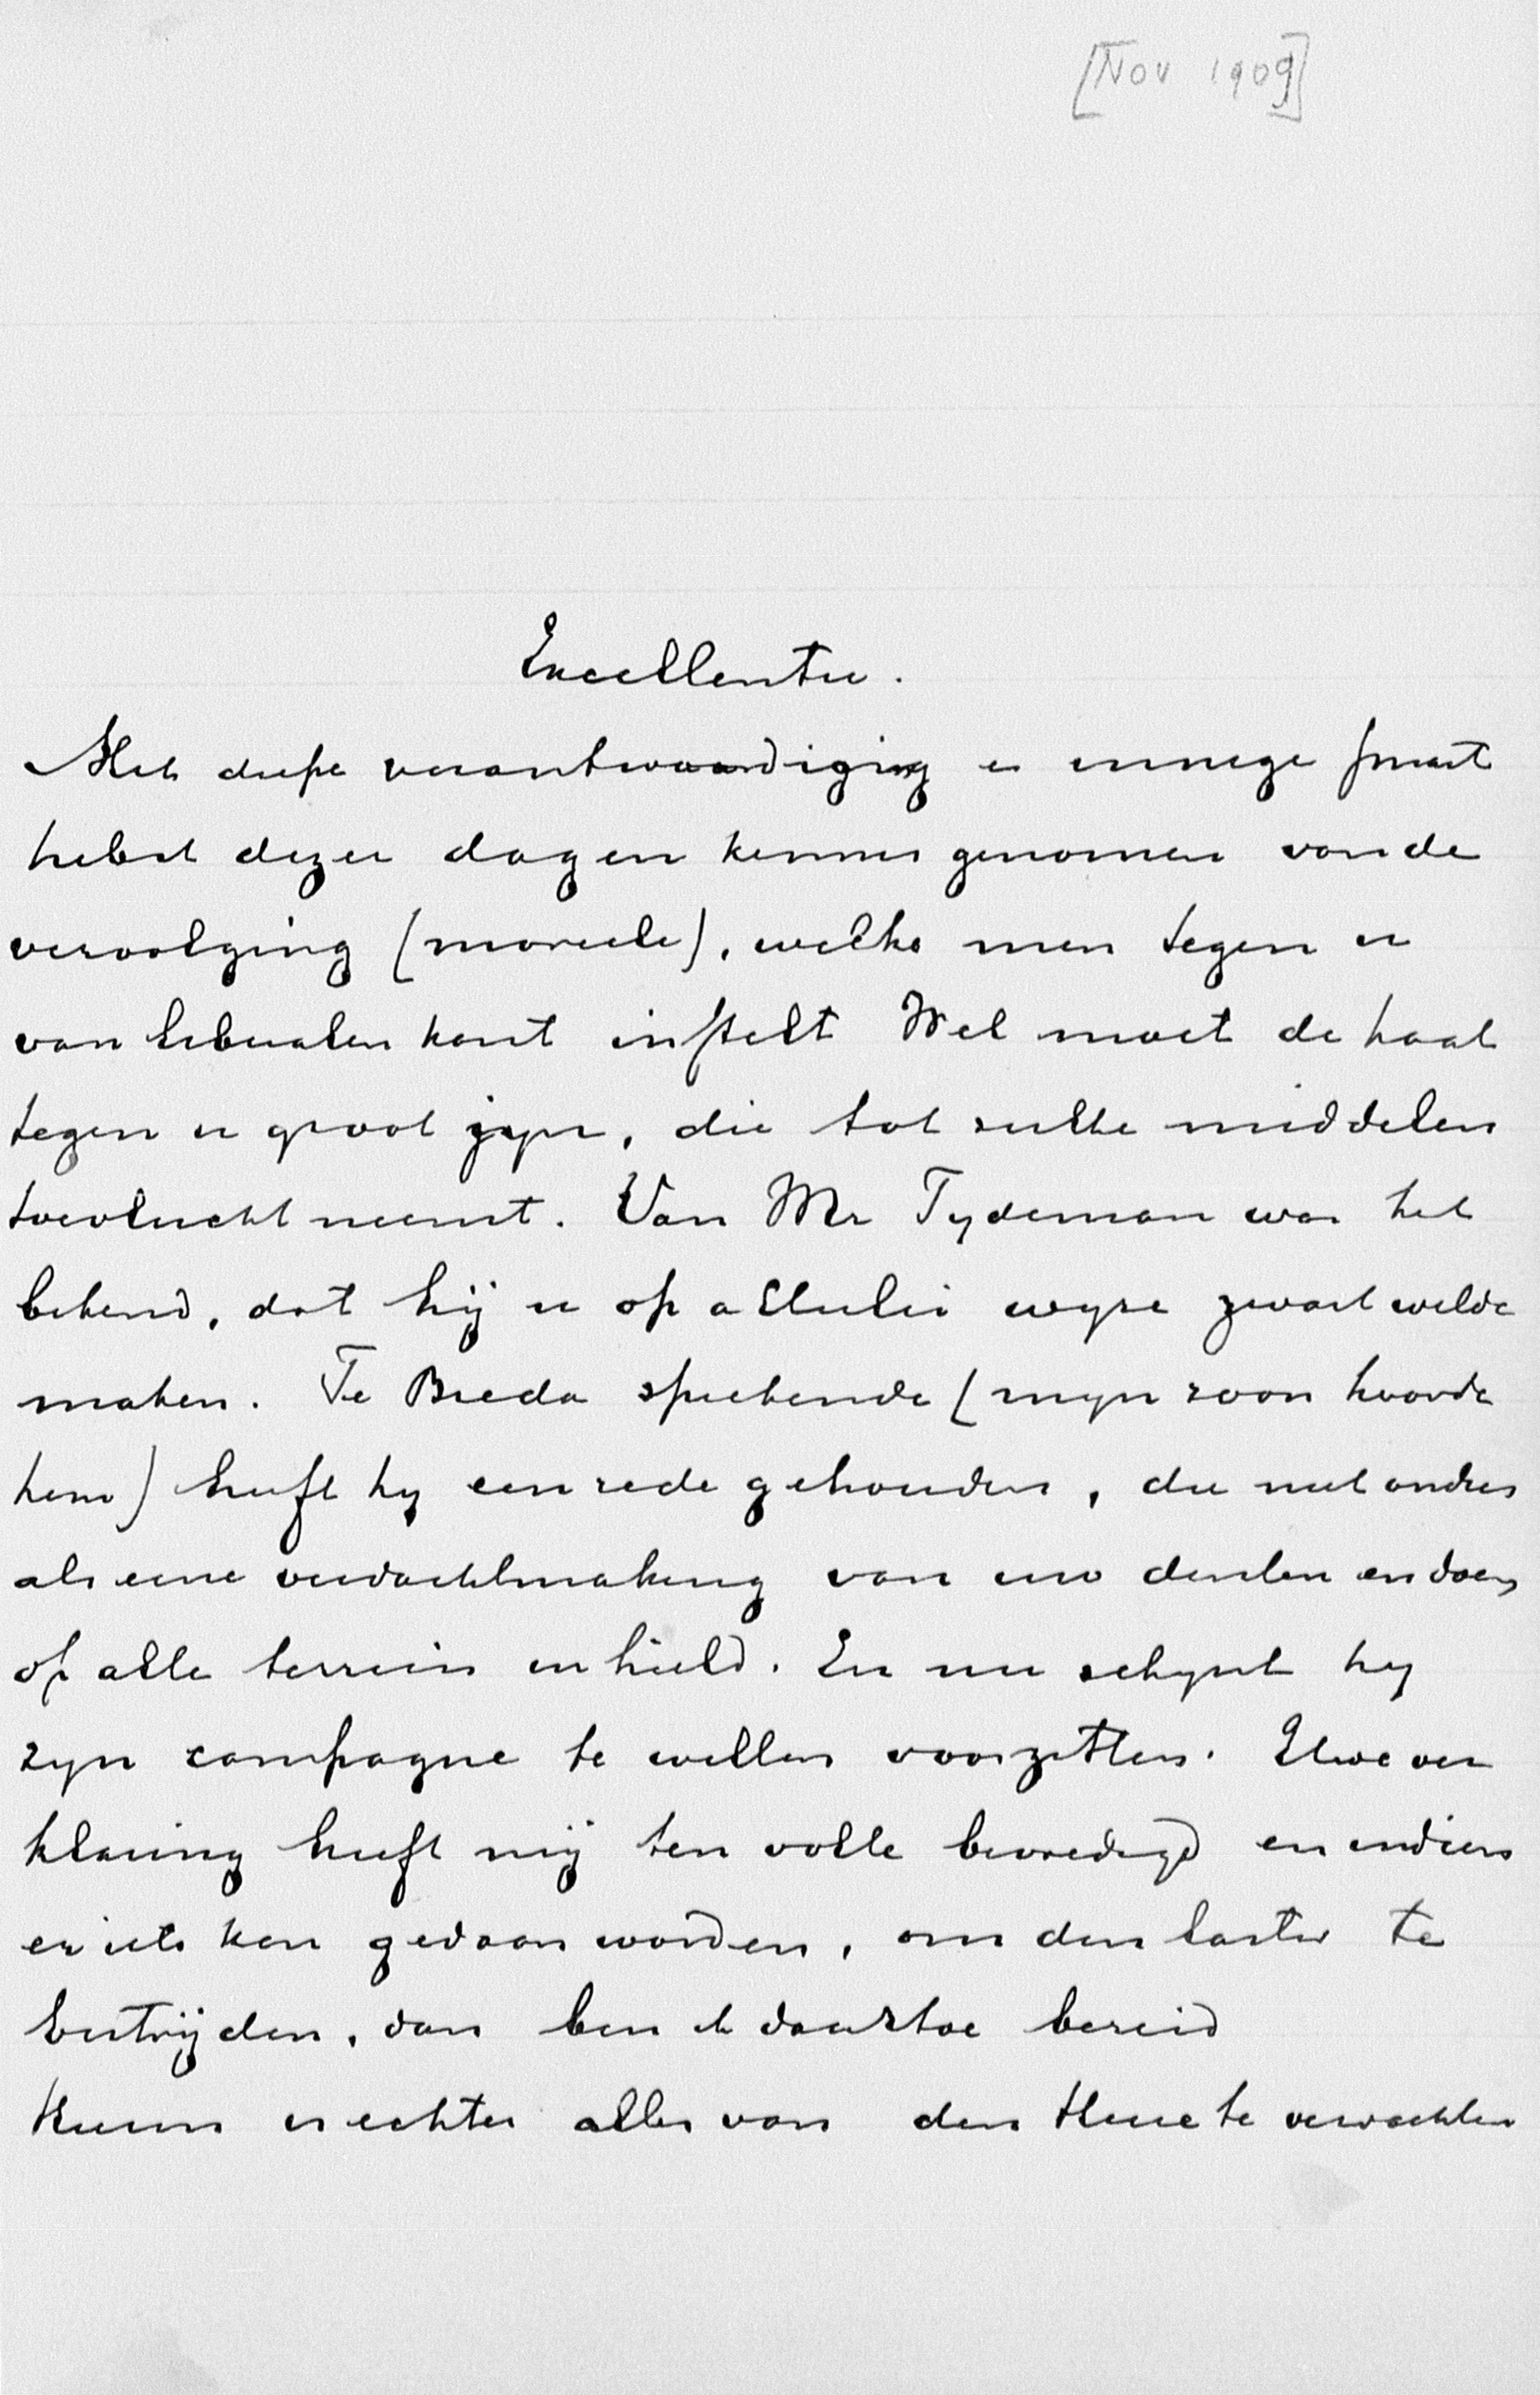 [Nov 1909]
Excellentie.
Met diepe verontwaardiging en innige smart
heb ik dezer dagen kennis genomen van de
vervolging (moreele), welke men tegen u
van liberalen kant instelt Wel moet de haat
tegen u groot zijn, die tot zulke middelen
toevlucht neemt. Van Mr Tydeman was het
bekend, dat hij u op allerlei wyze zwart wilde
maken. Te Breda sprekende (myn zoon hoorde
hem) heeft hy een rede gehouden, die niet anders
als eene verdachtmaking van uw denken en doen
op alle terrein inhield. En nu schynt hy
zyn campagne te willen voorzetten. Uwe ver
klaring heeft mij ten volle bevredigd en indien
er iets kan gedaan worden, om den laster te
bestrijden, dan ben ik daartoe bereid
Kuun er echter alles van den Heere te verwachten